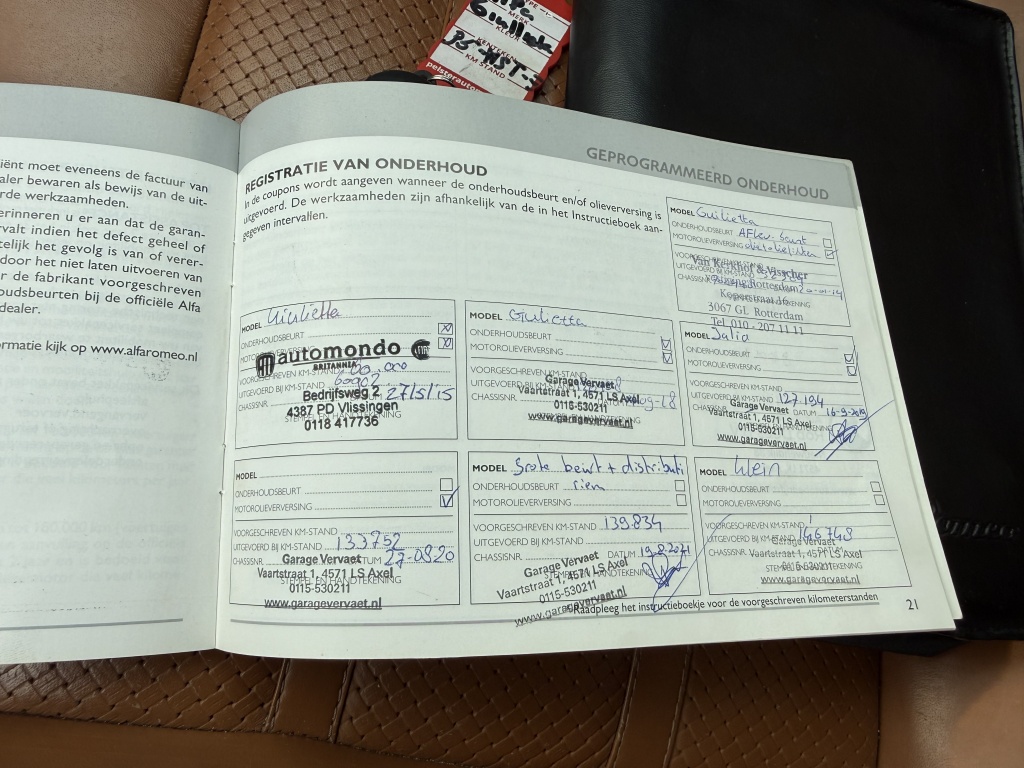 TYPE
MERK
KLEUR
KENTEKEN
KM STAND
pelsterauto
iënt moet eveneens de factuur van
aler bewaren als bewijs van de uit-
rde werkzaamheden.
erinneren u er aan dat de garan-
rvalt indien het defect geheel of
telijk het gevolg is van of verer-
door het niet laten uitvoeren van
r de fabrikant voorgeschreven
oudsbeurten bij de officiële Alfa
dealer.
rmatie kijk op www.alfaromeo.nl
GEPROGRAMMEERD ONDERHOUD
REGISTRATIE VAN ONDERHOUD
In de coupons wordt aangeven wanneer de onderhoudsbeurt en/of olieverversing is
uitgevoerd. De werkzaamheden zijn afhankelijk van de in het Instructieboek aan-
gegeven intervallen.
MODEL Guilietta
ONDERHOUDSBEURT AFlev. beurt
MOTOROLIEVERVERSING
VOORGESCHREVEN KM-STAND
UITGEVOERD BIJ KM-STAND
Van Kerkhof & Visscher
Rotterdam
3067 GL Rotterdam
Tel. 010 - 207 11 11
MODEL Giulietta
ONDERHOUDSBEURT
automondo
BRITANNIA
VOORGESCHREVEN KM-STAND
UITGEVOERD BIJ KM-STAND
CHASSISNR.
Bedrijfsweg 2 27/5/15
4387 PD Vlissingen
STEMPEL EN HANDTEKENING
0118 417736
MODEL Giulietta
ONDERHOUDSBEURT
MOTOROLIEVERVERSING
VOORGESCHREVEN KM-STAND
UITGEVOERD BIJ KM-STAND
CHASSISNR.
Garage Vervaet
Vaartstraat 1, 4571 LS Axel
0115-530211
www.garagevervaet.nl
MODEL
ONDERHOUDSBEURT
MOTOROLIEVERVERSING
VOORGESCHREVEN KM-STAND
UITGEVOERD BIJ KM-STAND 127.194
CHASSISNR. DATUM 16-9-2019
Garage Vervaet
Vaartstraat 1, 4571 LS Axel
0115-530211
www.garagevervaet.nl
MODEL
ONDERHOUDSBEURT
MOTOROLIEVERVERSING
VOORGESCHREVEN KM-STAND
UITGEVOERD BIJ KM-STAND 133752
CHASSISNR. DATUM 27-0820
Garage Vervaet
Vaartstraat 1, 4571 LS Axel
STEMPEL EN HANDTEKENING
0115-530211
www.garagevervaet.nl
MODEL Grote beurt + distributi
ONDERHOUDSBEURT riem
MOTOROLIEVERVERSING
VOORGESCHREVEN KM-STAND 139.834
UITGEVOERD BIJ KM-STAND
CHASSISNR. DATUM 19.8.2021
Garage Vervaet
Vaartstraat 1, 4571 LS Axel
STEMPEL EN HANDTEKENING
0115-530211
www.garagevervaet.nl
MODEL klein
ONDERHOUDSBEURT
MOTOROLIEVERVERSING
VOORGESCHREVEN KM-STAND
UITGEVOERD BIJ KM-STAND 146748
CHASSISNR.
Garage Vervaet
Vaartstraat 1, 4571 LS Axel
0115-530211
www.garagevervaet.nl
Raadpleeg het instructieboekje voor de voorgeschreven kilometerstanden
21